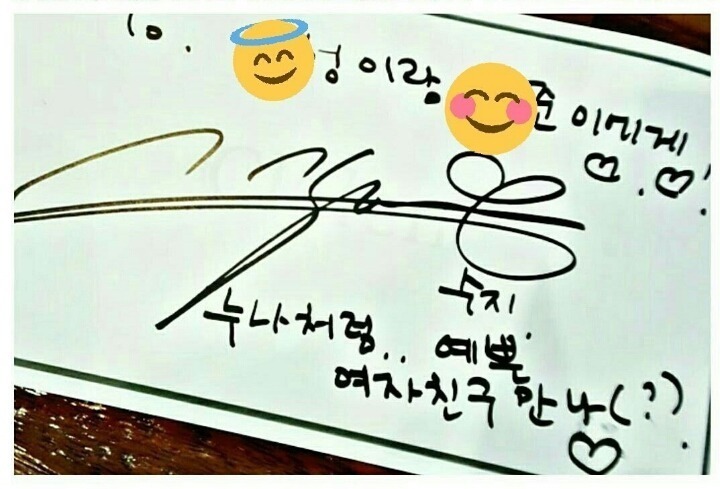 To. 성이랑 준이에게
♡.♡!
수지
누나처럼.. 예쁜
여자친구 만나(?).
♡